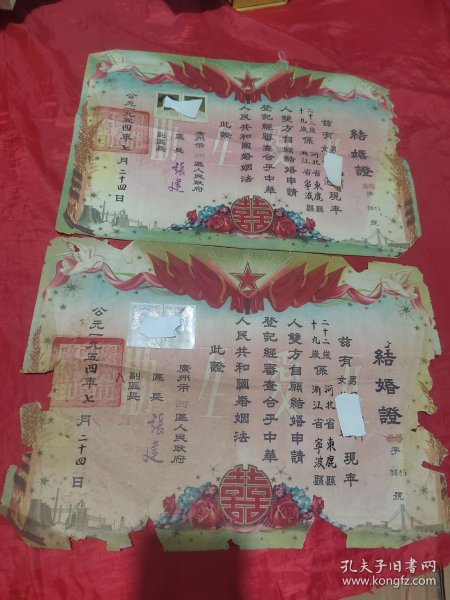 結婚證
字
號
茲有男
女
現年
二十二歲 係 河北省東鹿縣
十九歲 浙江省寧波縣
人雙方自願結婚申請
登記經審查合乎中華
人民共和國婚姻法
此證
廣州市 區人民政府
區長 張建
副區長
公元一九五四年七月二十四日
囍
結婚證
字
3645
號
茲有男
女
現年
二十二歲 係 河北省東鹿縣
十九歲 浙江省寧波縣
人雙方自願結婚申請
登記經審查合乎中華
人民共和國婚姻法
此證
廣州市 區人民政府
區長 張建
副區長
公元一九五四年七月二十四日
囍
孔夫子旧书网
www.kongfz.com